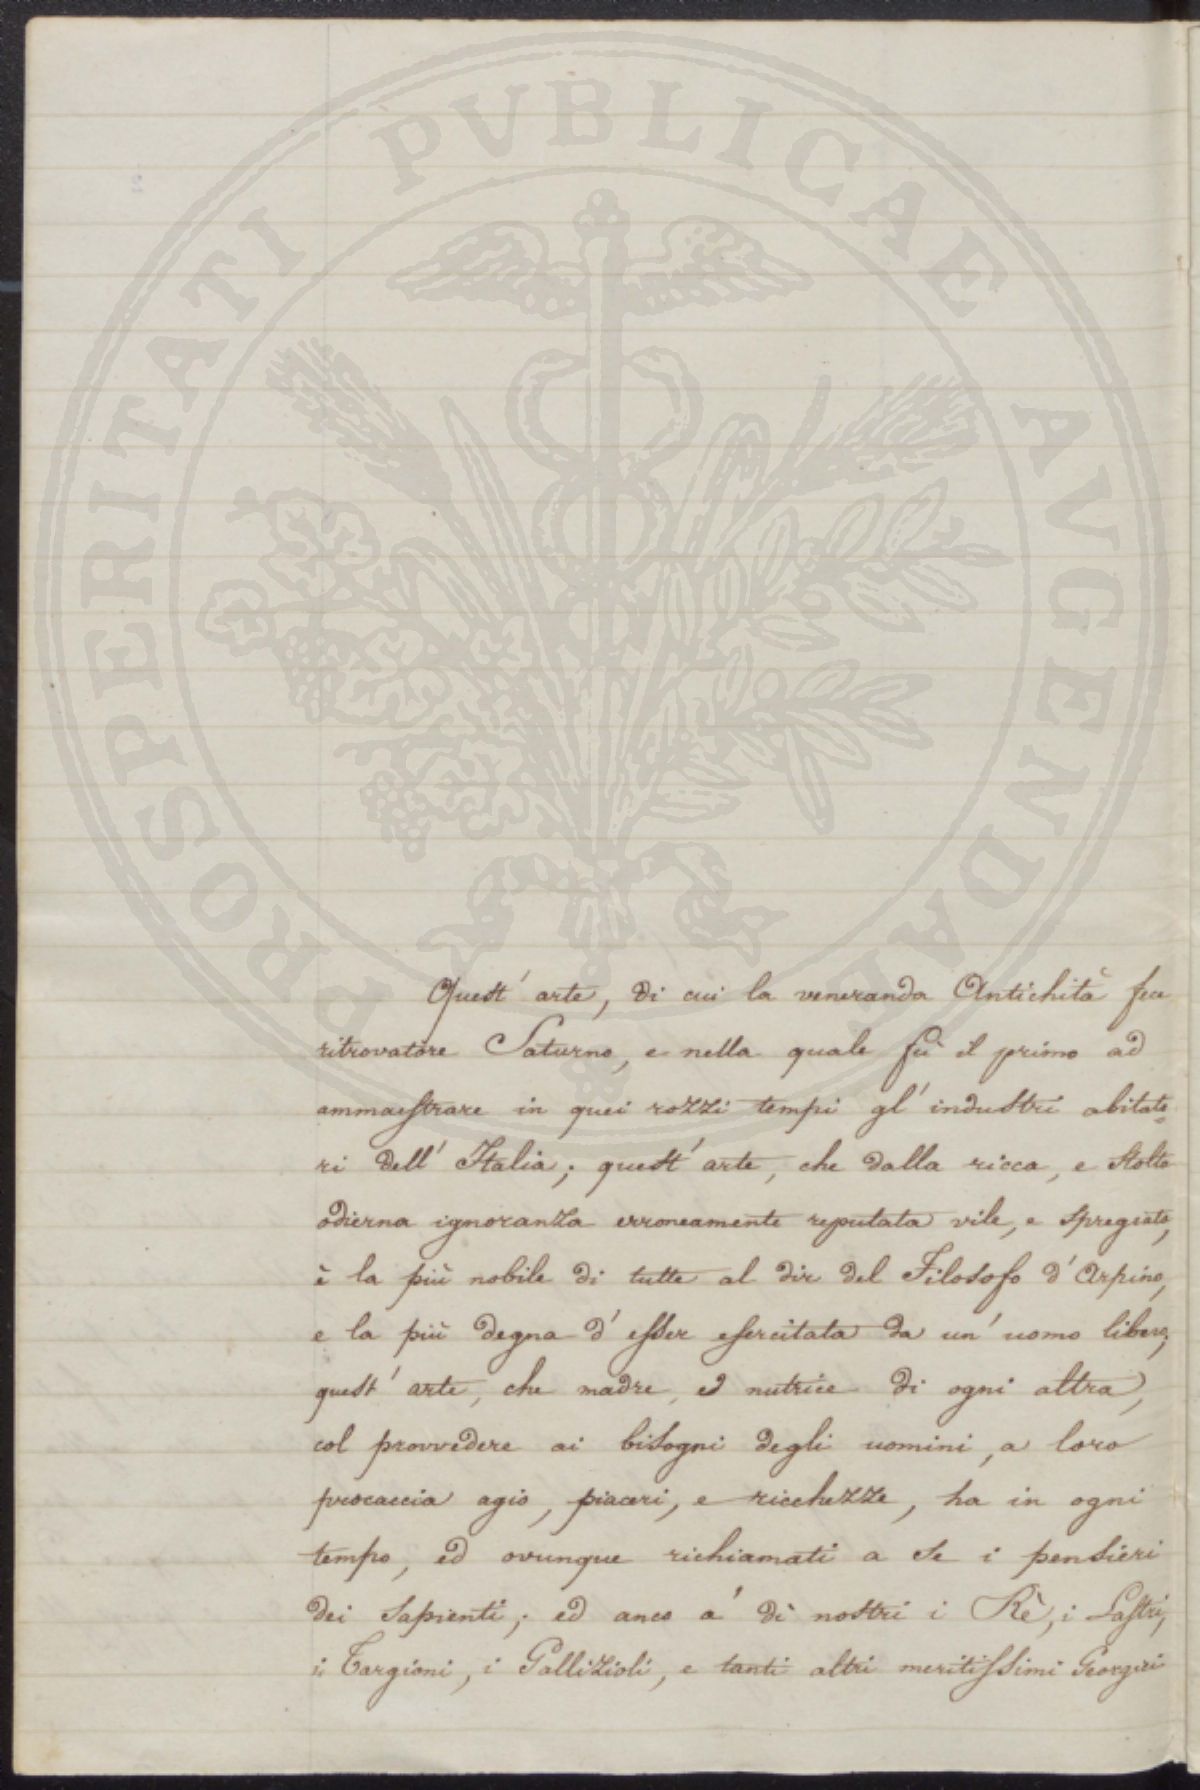 PROSPERITATI PUBLICAE AVGENDAE
Quest' arte, di cui la veneranda Antichità fece
ritrovatore Saturno, e nella quale fù il primo ad
ammaestrare in quei rozzi tempi gl' industri abitato=
ri dell' Italia; quest' arte, che dalla ricca, e stolta
odierna ignoranza erroneamente reputata vile, e spregiata,
è la più nobile di tutte al dir del Filosofo d' Arpino,
e la più degna d' esser esercitata da un' uomo libero;
quest' arte, che madre, ed nutrice di ogni altra,
col provvedere ai bisogni degli uomini, a loro
procaccia agio, piaceri, e ricchezze, ha in ogni
tempo, ed ovunque richiamati a se i pensieri
dei sapienti; ed anco a' dì nostri i Rè, i Lastri,
i Targioni, i Gallizioli, e tanti altri meritissimi Georgici